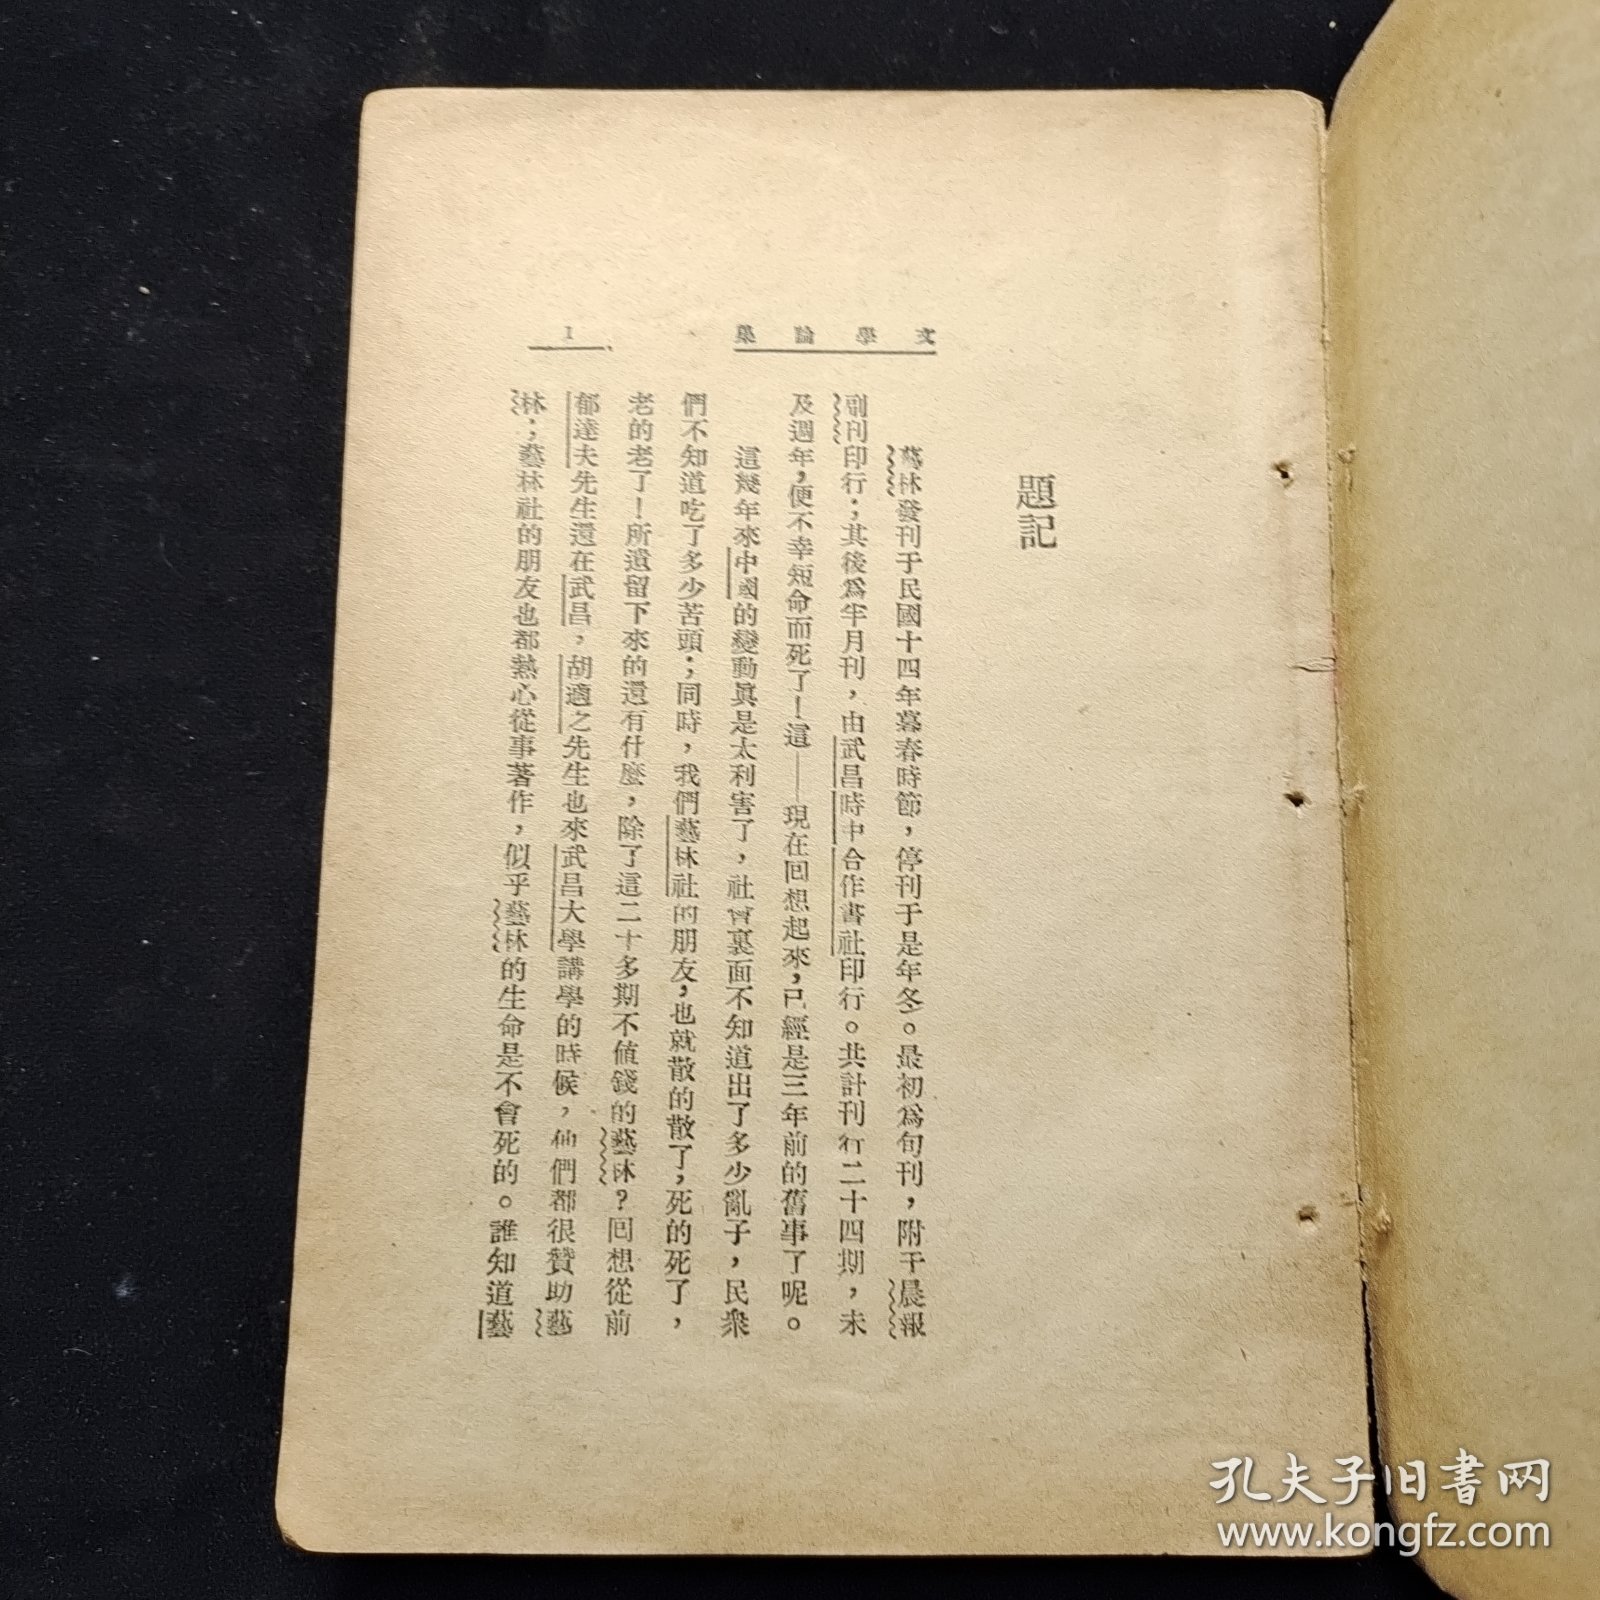 文學論集
1
題記
藝林發刊于民國十四年暮春時節，停刊于是年冬。最初爲旬刊，附于晨報
副刊印行；其後爲半月刊，由武昌時中合作書社印行。共計刊行二十四期，未
及週年，便不幸短命而死了！這——現在回想起來，已經是三年前的舊事了呢。
這幾年來中國的變動眞是太利害了，社會裏面不知道出了多少亂子，民衆
們不知道吃了多少苦頭；同時，我們藝林社的朋友，也就散的散了，死的死了，
老的老了！所遺留下來的還有什麼，除了這二十多期不值錢的藝林？回想從前
郁達夫先生還在武昌，胡適之先生也來武昌大學講學的時候，他們都很贊助藝
林；藝林社的朋友也都熱心從事著作，似乎藝林的生命是不會死的。誰知道藝
孔夫子旧书网
www.kongfz.com